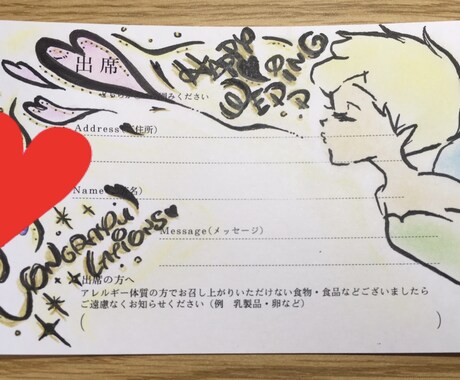 出席
HAPPY
WEDDING
みください
Address(ご住所)
Name(ご芳名)
CONGRATU
LATIONS
Message(メッセージ)
出席の方へ
アレルギー体質の方でお召し上がりいただけない食物・食品などございましたら
ご遠慮なくお知らせください(例 乳製品・卵など)
(